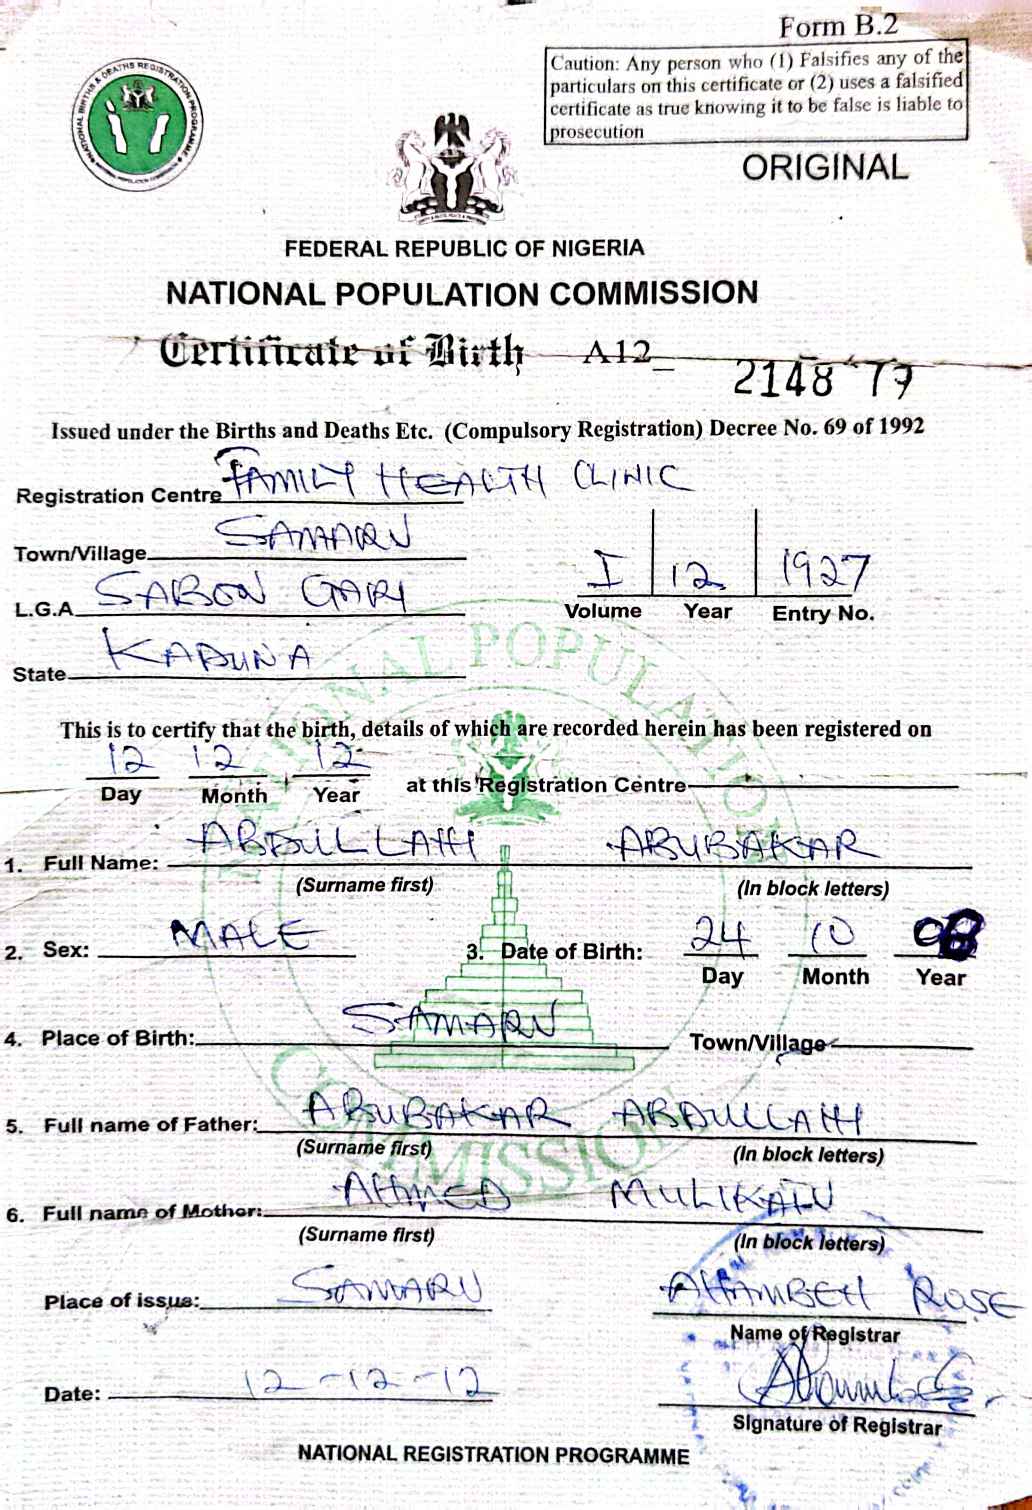 Form B.2
Caution: Any person who (1) Falsifies any of the
particulars on this certificate or (2) uses a falsified
certificate as true knowing it to be false is liable to
prosecution
ORIGINAL
NATIONAL BIRTHS & DEATHS REGISTRATION PROGRAMME
FEDERAL REPUBLIC OF NIGERIA
NATIONAL POPULATION COMMISSION
Certificate of Birth A12 2148 77
Issued under the Births and Deaths Etc. (Compulsory Registration) Decree No. 69 of 1992
Registration Centre FAMILY HEALTH CLINIC
Town/Village SAMARU
L.G.A SABON GARI
State KADUNA
I 12 1927
Volume Year Entry No.
This is to certify that the birth, details of which are recorded herein has been registered on
12 12 12
Day Month Year at this Registration Centre
1. Full Name: ABDULLAHI ABUBAKAR
(Surname first) (In block letters)
2. Sex: MALE 3. Date of Birth: 24 10
Day Month Year
4. Place of Birth: SAMARU Town/Village
5. Full name of Father: ABUBAKAR ABDULLAHI
(Surname first) (In block letters)
6. Full name of Mother: AHMED MULIKATU
(Surname first) (In block letters)
Place of issue: SAMARU ROSE
Name of Registrar
Date: 12-12-12
Signature of Registrar
NATIONAL REGISTRATION PROGRAMME
NATIONAL POPULATION COMMISSION